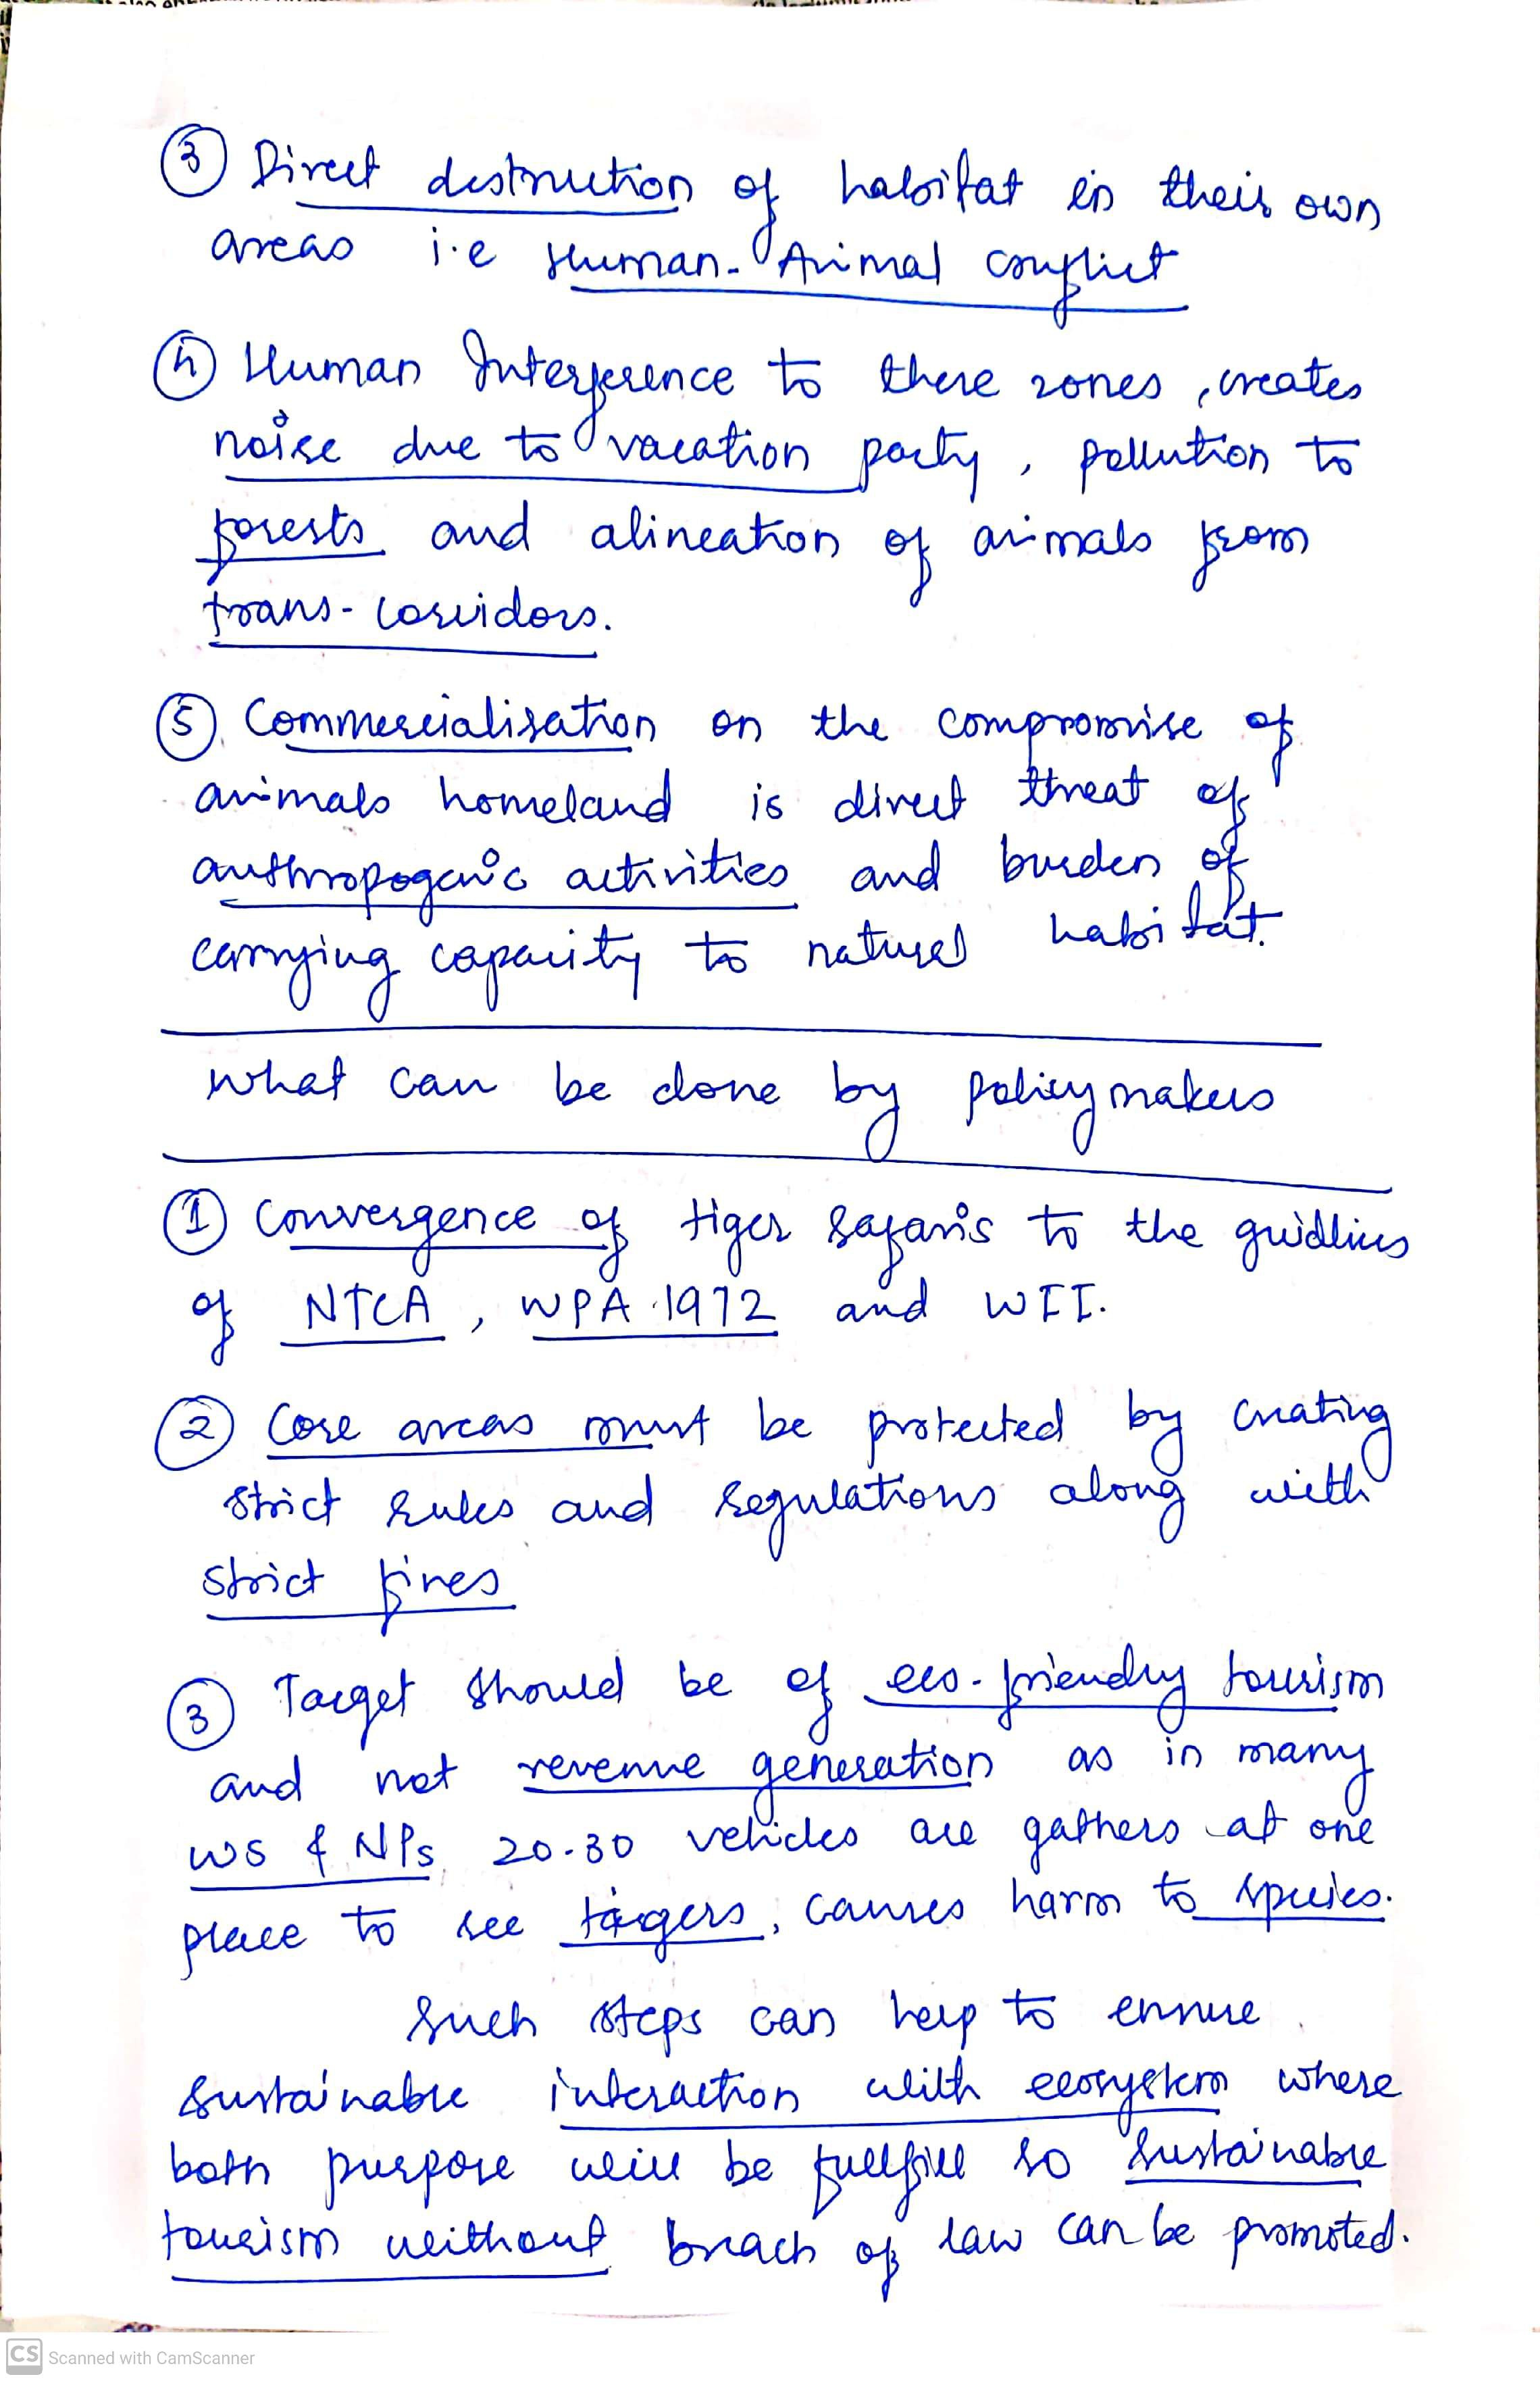 ③ Direct destruction of habitat in their own
areas i.e Human-Animal conflict
④ Human Interference to these zones, creates
noise due to vacation party, pollution to
forests and alineation of animals from
trans-corridors.
⑤ Commercialisation on the compromise of
animals homeland is direct threat of
anthropogenic activities and burden of
carrying capacity to natural habitat.
what can be done by policymakers
① Convergence of tiger safaris to the guidlines
of NTCA, WPA 1972 and WII.
② Core areas must be protected by creating
strict rules and regulations along with
strict fines
③ Target should be of eco-friendly tourism
and not revenue generation as in many
WS & NPs, 20-30 vehicles are gathers at one
place to see tigers, causes harm to species.
Such steps can help to ensure
sustainable interaction with ecosystem where
both purpose will be fullfill so sustainable
tourism without breach of law can be promoted.
CS Scanned with CamScanner